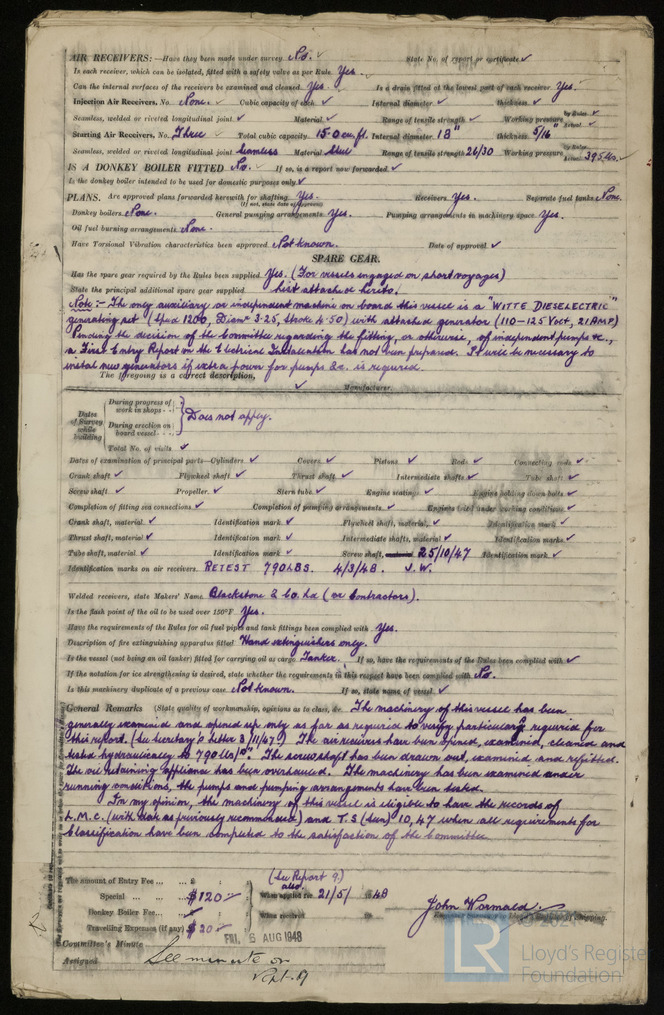 AIR RECEIVERS:—Have they been made under survey No. ✓ State No. of report or certificate ✓
Is each receiver, which can be isolated, fitted with a safety valve as per Rule Yes. ✓
Can the internal surfaces of the receivers be examined and cleaned Yes. ✓ Is a drain fitted at the lowest part of each receiver Yes. ✓
Injection Air Receivers, No. None. ✓ Cubic capacity of each ✓ Internal diameter ✓ thickness ✓
Seamless, welded or riveted longitudinal joint ✓ Material ✓ Range of tensile strength ✓ Working pressure by Rules ✓ Actual ✓
Starting Air Receivers, No. Three ✓ Total cubic capacity 15.0 cu. ft. Internal diameter 18" thickness 5/16"
Seamless, welded or riveted longitudinal joint Seamless Material Steel Range of tensile strength 26/30 Working pressure by Rules Actual 395 lbs. ✓
IS A DONKEY BOILER FITTED No. ✓ If so, is a report now forwarded ✓
Is the donkey boiler intended to be used for domestic purposes only ✓
PLANS. Are approved plans forwarded herewith for shafting Yes. Receivers Yes. Separate fuel tanks None.
(If not, state date of approval)
Donkey boilers None. General pumping arrangements Yes. Pumping arrangements in machinery space Yes.
Oil fuel burning arrangements None.
Have Torsional Vibration characteristics been approved Not known. Date of approval ✓
SPARE GEAR.
Has the spare gear required by the Rules been supplied Yes. (For vessels engaged on short voyages)
State the principal additional spare gear supplied List attached hereto.
Note:- The only auxiliary or independent machine on board this vessel is a "WITTE DIESELECTRIC"
generating set (Spud 1200, Diamr 3.25, Stroke 4.50) with attached generator (110-125 Volt, 21 AMP)
Pending the decision of the Committee regarding the fitting, or otherwise, of independent pumps &c.,
a First Entry Report on the Electrical Installation has not been prepared. It will be necessary to
instal new generators if extra power for pumps &c. is required.
The foregoing is a correct description,
✓ Manufacturer.
Dates of Survey while building
During progress of work in shops - -
During erection on board vessel - - -
Does not apply.
Total No. of visits ✓
Dates of examination of principal parts—Cylinders ✓ Covers ✓ Pistons ✓ Rods ✓ Connecting rods ✓
Crank shaft ✓ Flywheel shaft ✓ Thrust shaft ✓ Intermediate shafts ✓ Tube shaft ✓
Screw shaft ✓ Propeller ✓ Stern tube ✓ Engine seatings ✓ Engine holding down bolts ✓
Completion of fitting sea connections ✓ Completion of pumping arrangements ✓ Engines tried under working conditions ✓
Crank shaft, material ✓ Identification mark ✓ Flywheel shaft, material, ✓ Identification mark ✓
Thrust shaft, material ✓ Identification mark ✓ Intermediate shafts, material ✓ Identification marks ✓
Tube shaft, material ✓ Identification mark ✓ Screw shaft, 25/10/47 Identification mark ✓
Identification marks on air receivers. RETEST 790 LBS. 4/3/48. J.W.
Welded receivers, state Makers' Name Blackstone & Co. Ld (or Contractors).
Is the flash point of the oil to be used over 150°F. Yes.
Have the requirements of the Rules for oil fuel pipes and tank fittings been complied with Yes.
Description of fire extinguishing apparatus fitted Hand extinguishers only.
Is the vessel (not being an oil tanker) fitted for carrying oil as cargo Tanker. If so, have the requirements of the Rules been complied with ✓
If the notation for ice strengthening is desired, state whether the requirements in this respect have been complied with No.
Is this machinery duplicate of a previous case Not known. If so, state name of vessel ✓
General Remarks (State quality of workmanship, opinions as to class, &c. The machinery of this vessel has been
generally examined and opened up only as far as required to verify particulars required for
this report. (See Secretary's letter 3/11/47.) The air receivers have been opened, examined, cleaned and
tested hydraulically to 790 lbs/□". The screwshaft has been drawn out, examined and refitted.
The oil retaining appliance has been overhauled. The machinery has been examined under
running conditions, the pumps and pumping arrangements have been tested.
In my opinion, the machinery of this vessel is eligible to have the records of
L.M.C. (with date as previously recommended) and T.S (been) 10, 47 when all requirements for
Classification have been completed to the satisfaction of the Committee
The amount of Entry Fee ... £ : :
Special ... $120
Donkey Boiler Fee ...
Travelling Expenses (if any) $20
(See Report 9.)
also.
When applied for 21/5/ 1948
When received
John Wormald.
FRI. 6 AUG 1948
Committee's Minute
Assigned
See minute on
Rpt. 9
© 2021
LR
Lloyd's Register
Foundation